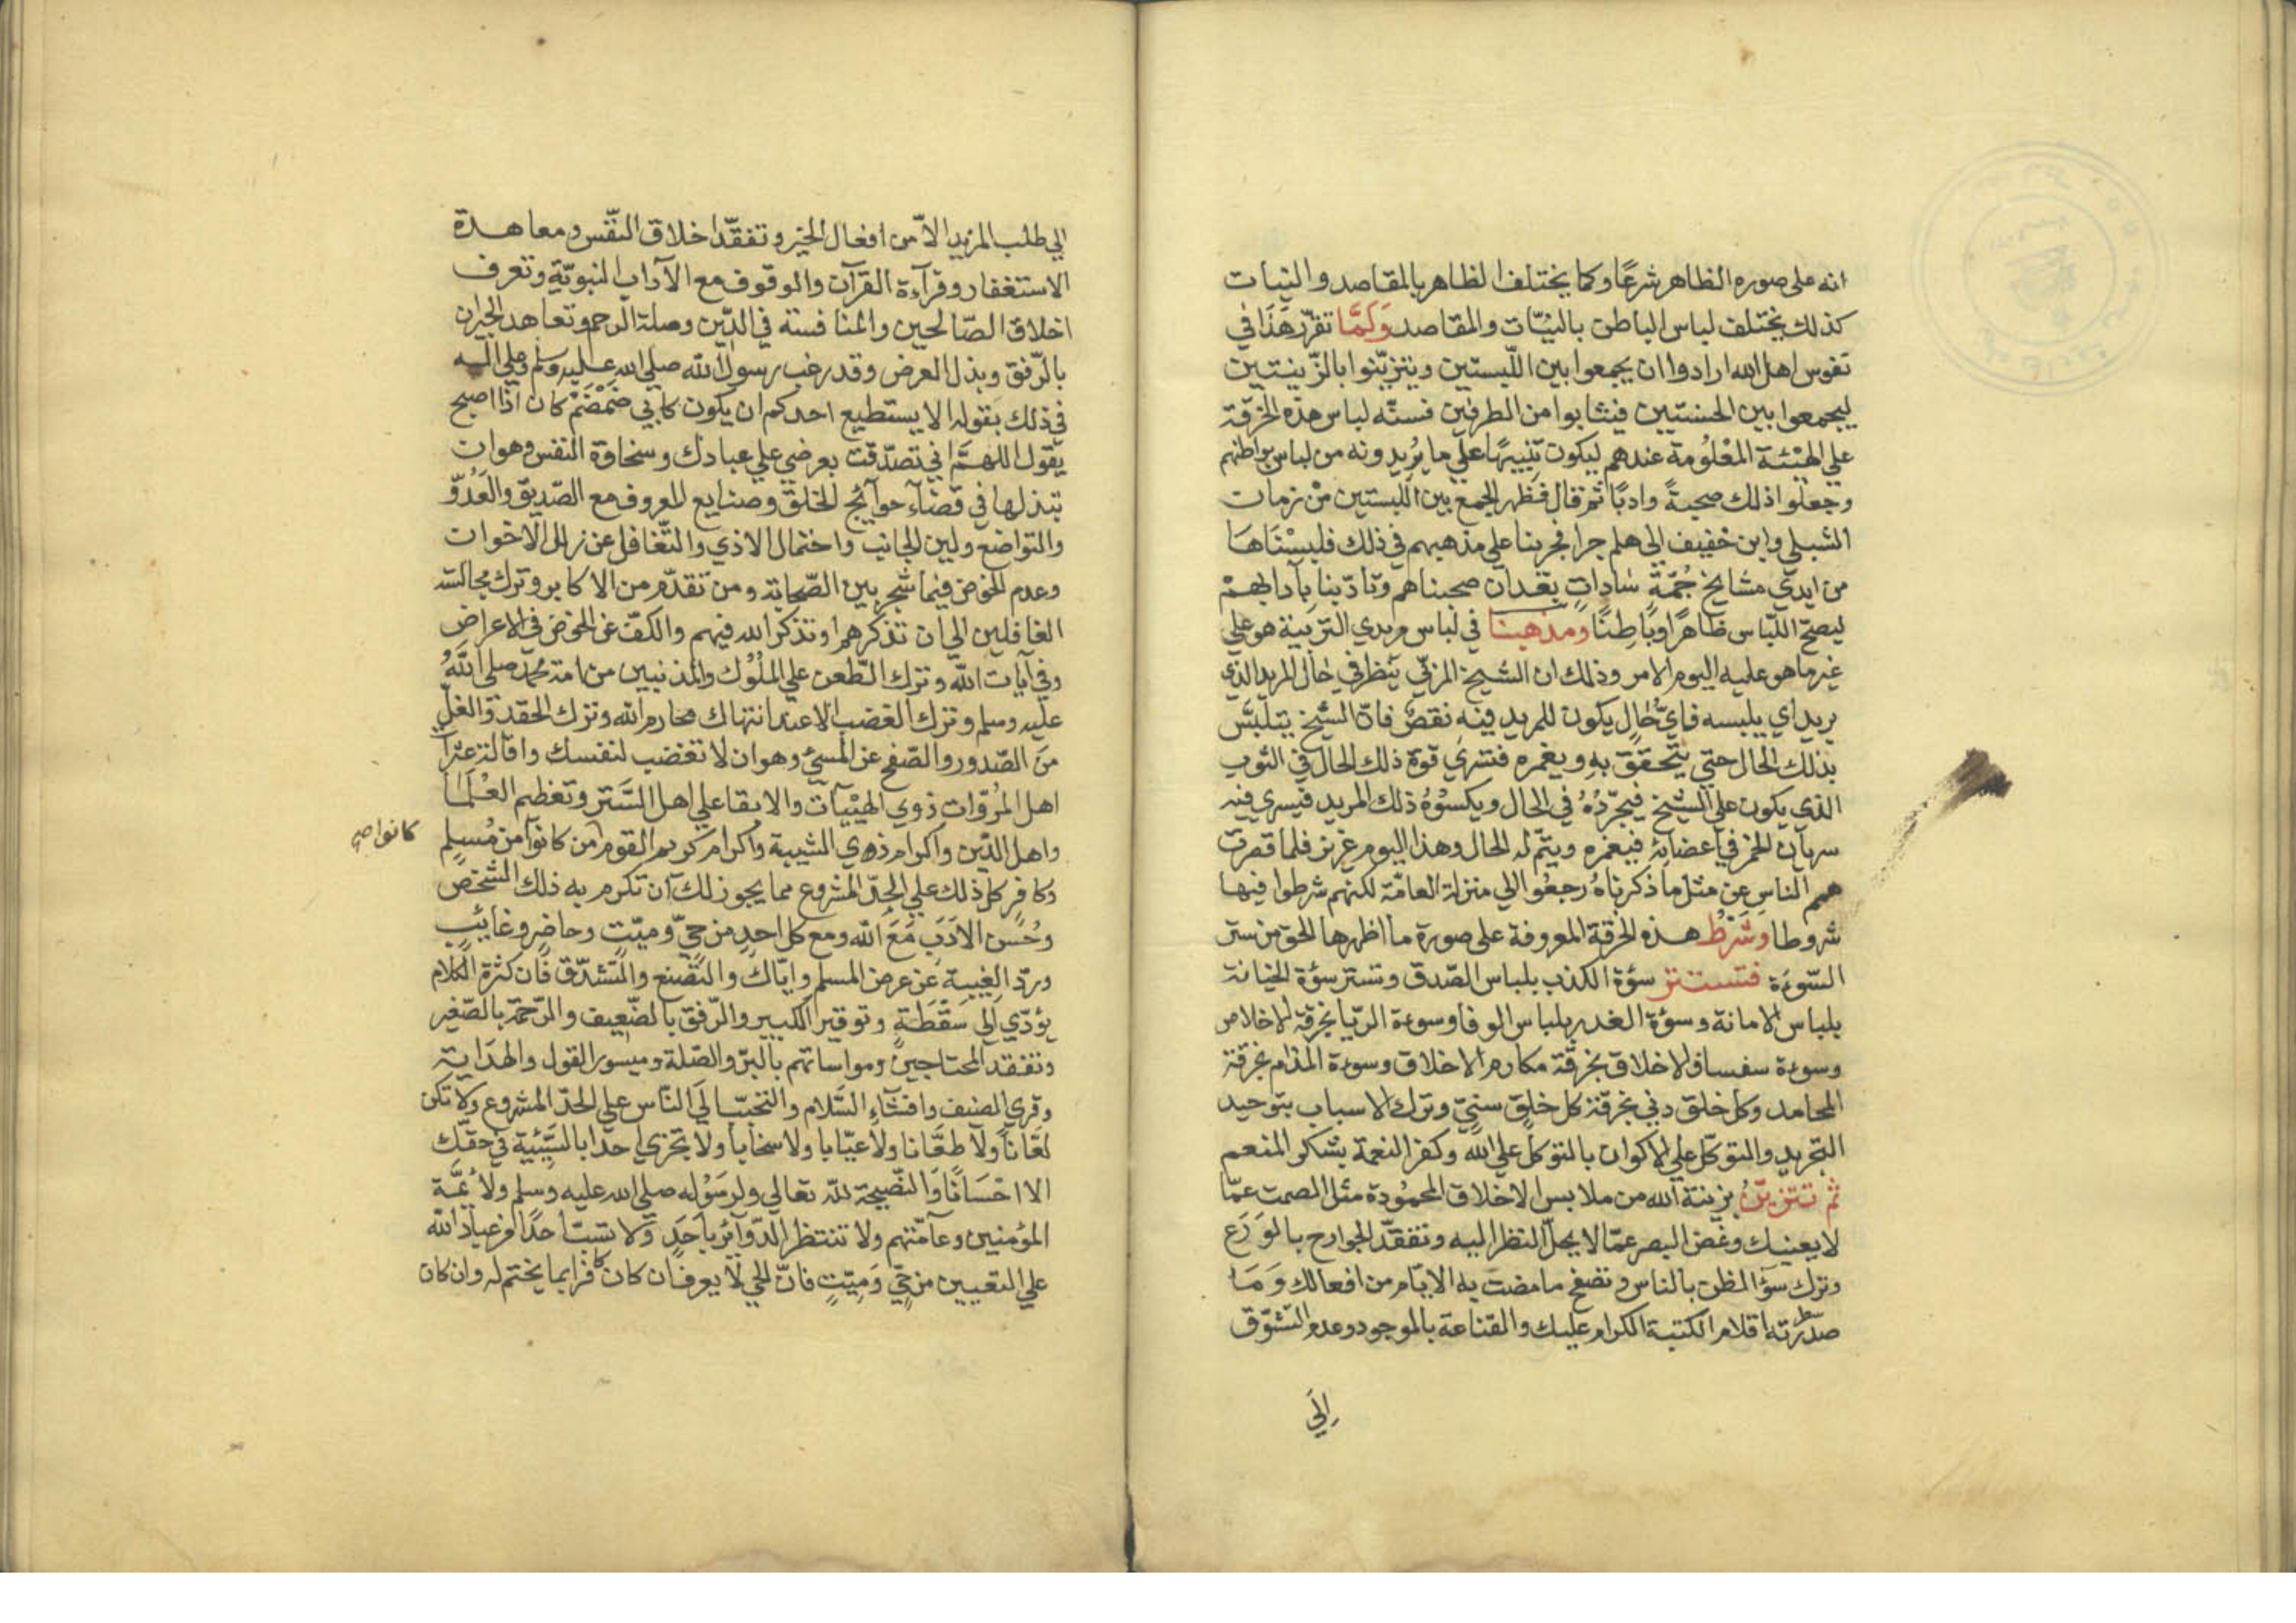 انه على صوره الظاهر شرعًا وكما يختلف الظاهر بالمقاصد والنيات
كذلك يختلف لباس الباطن بالنيّات والمقاصد وَلَمَّا تقرّر هَذَا في
نفوس اهل الله ارادوا ان يجمعوا بين اللّبستين ويتزيّنوا بالزّينتين
ليجمعوا بين الحسنتيين فيثابوا من الطرفين فسنّه لباس هذه الخرقة
علي الهيْئة المعْلُومة عندهم ليكون تنبيهًا علي ما يُريدونه من لباس بواطنهم
وجعلوا ذلك صحبةً وادبًا ثم قال فظهر الجمع بين اللبستين من زمان
الشبلي وابن خفيف الي هلم جرا فجرينا علي مذهبهم في ذلك فلبِسْنَاهَا
من ايدي مشايخ جُمّةٍ سَاداتٍ بعْدان صحبناهم وتادّبنا بآدابهمْ
ليصحّ اللّباس ظاهرًا وبَاطِنًا ومذهبنا في لباس مريدي التربية هو علي
غير ما هو عليه اليوم الامر وذلك ان الشيخ المربّي ينظر في حال المريد الذي
يريد اي يلبسه فايّ حَالٍ يكون للمريد فيه نقصٌ فانّ الشيخ يتلبّس
بذلك الحال حتي يتحقق به ويغمره فتسْري قوة ذلك الحال في الثوب
الذي يكون علي الشيخ فيجرّدُهُ في الحال ويكسُوْهُ ذلك المريد فيسري فيه
سريان الخمر في اعضائهِ فيغمره ويتمّ له الحال وهذا اليوم عزيز فلما قصرت
همم الناس عن مثل ما ذكرناهُ رجعُوا الي منزلة العامّة لكنهم شرطوا فيها
شروطا وَشَرْطُ هذه الخرقة المعروفة على صورة ما اظهرها الحق من ستر
السّوءة فتستتر سؤة الكذب بلباس الصّدق وتستتر سؤة الخيانة
بلباس الامانة وسؤة الغدر بلباس الوفا وسوءة الريّا بخرقة الاخلاص
وسوءة سفساف الاخلاق بخرقة مكارم الاخلاق وسوءة المذام بخرقة
المحامد وكل خلق دني بخرقة كل خلق سنيّ وترك الاسباب بتوحيد
التجريد والتوكّل علي الاكوان بالتوكّل علي الله وكفر النعمة بشكر المنعم
ثم تتزيّنُ بزينة الله من ملابس الاخلاق المحمُوْدة مثل الصمت عمّا
لا يعنيك وغضّ البصر عمّا لا يحلّ النظر اليه وتفقّد الجوارح بالوَرَع
وترك سؤ الظن بالناس وتصفح ما مضت به الايّام من افعالك وَمَا
سطرته اقلام الكتبة الكرام عليك والقناعة بالموجود وعدم التشوّق
اِلَي
الي طلب المزيد الاّ من افعال الخير وتفقّد اخلاق النّفْس ومعاهدة
الاستغفار وقرآءة القرآن والوقوف مع الآداب النبويّة وتعرف
اخلاق الصّالحين والمنافسة في الدّين وصلة الرحم وتعاهد الجيران
بالرّفق وبذل العرض وقد رغب رسول الله صلي الله عليه وسلم وعلي اله
في ذلك بقوله الا يستطيع احدكم ان يكون كابي ضَمْضَمْ كان اذا اصبح
يقول اللهمَّ اني تصدّقت بعرضي علي عبادك وسخاوة النفس وهو ان
تبذلها في قضآء حوآئج الخلق وصنايع المعروف مع الصّديق والعَدُوّ
والتواضع ولين الجانب واحتمال الاذي والتّغافل عن زلل الاخوان
وعدم الخوض فيما شجر بين الصّحابة ومن تقدّم من الاكابر وترك مجالسة
الغافلين الي ان تذكرهم او تذكر الله فيهم والكفّ عن الخوض في الاعراض
وفي آيات الله وترك الطّعن علي الملُوْك والمذنبين من امة محمد صلي اللهُ
عليه وسلم وترك الغضب الا عند انتهاك محارم الله وترك الحقد والغلّ
من الصّدور والصّفح عن المسيّ وهو ان لا تغضب لنفسك واقالة عثرآت
اهل المُروّات ذوي الهيْآت والابقا علي اهل السَّتر وتعظيم العُلَمَا
واهل الدّين واكرام ذوي الشيبة واكرام كريم القوم من كانوا من مُسلِم
كانوا صح
وكافرٍ كلّ ذلك علي الحِدّ المشروع مما يجوز لك ان تكرم به ذلك الشخص
وحُسن الاَدَبِ مَعَ الله ومع كل احدٍ من حيّ وميّتٍ وحاضرٍ وغايئبٍ
وردّ الغِيبة عن عرض المسلم وايّاك والتصَنع والتشدّق فان كثرة الكلام
يؤدّي الي سَقْطَةٍ وتوقير الكبير والرّفق بالضّعيف والرّحمة بالصّغير
وتفقد المحتاجين ومواساتهم بالبرّ والصّلة وميسور القول والهدَاية
وقري الضيف وافشَاء السَّلام والتحبّب الَي النّاس علي الحدّ المشروع ولا تكن
لعّاناً ولا طعَّانا ولا عيّابا ولا سخّاباً ولا تجزي احدًا بالسَّيّئية في حقّك
الا احْسَانًا وَالنّصِيحة لله تعالي ولرسُوْله صلي الله عليه وسلم ولأئمَّة
المؤمنين وعآمّتهم ولا تنتظر الدّوآئر باَحَدٍ وَلا تسُبّ احدًا من عبَاد الله
علي التعيين من حيٍّ وَميّتٍ فانّ الحي لا يعرف ان كان كافرا بما يختم له وان كان